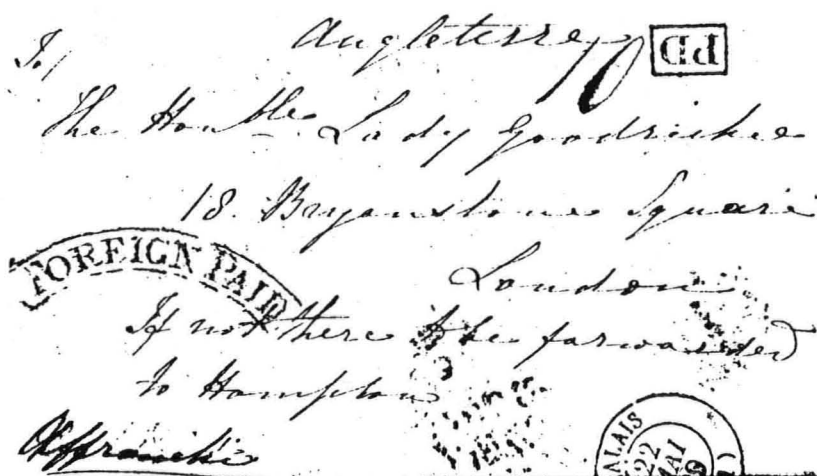 Angleterre PD
To/
The Honble Lady Goodricke
18. Bryanstone Square
FOREIGN PAID
London
If not there to be forwarded
to Hampton
Affranchie
CALAIS
22
MAI